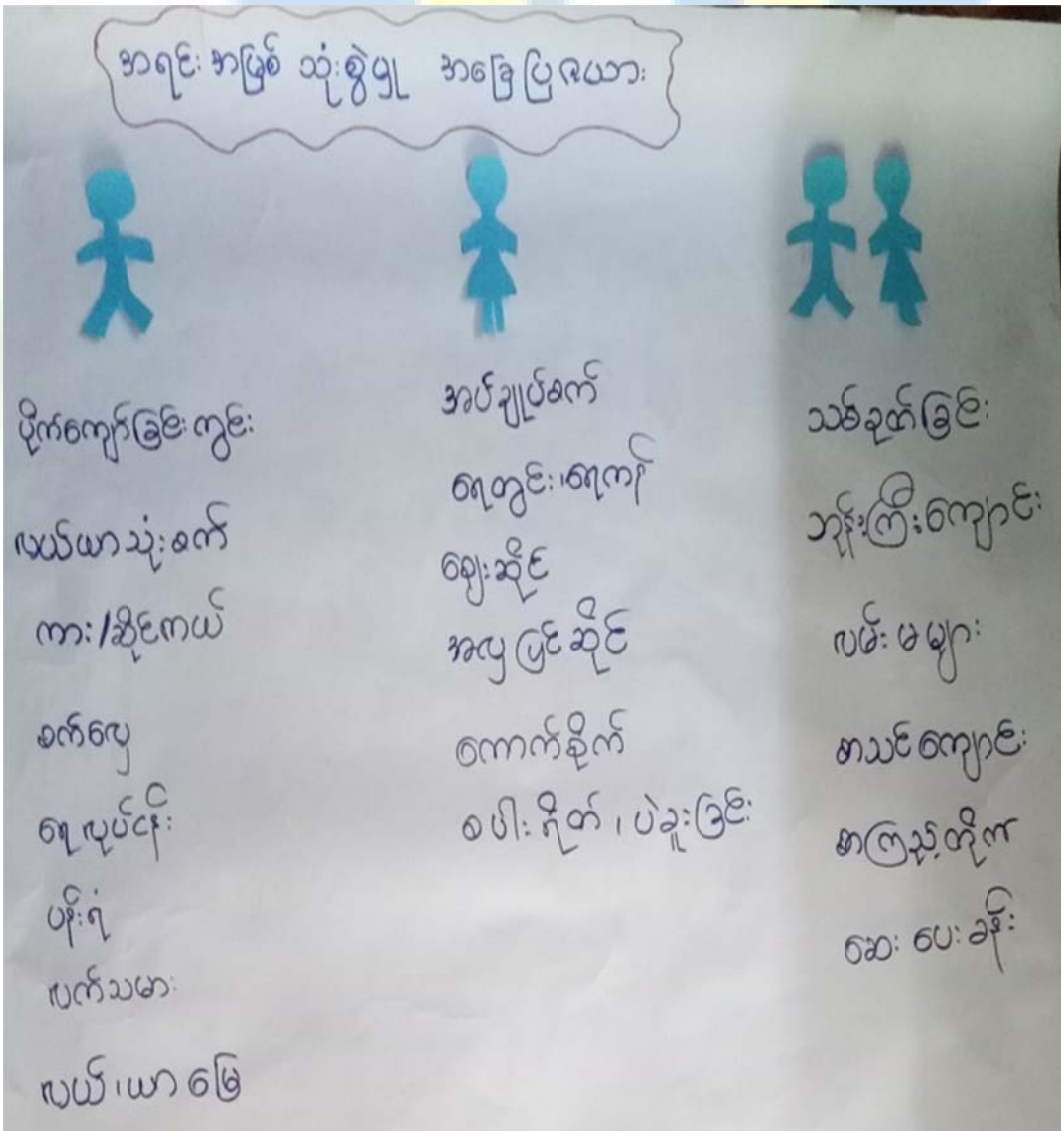 အရင်းအမြစ် သုံးစွဲမှု အခြေပြဇယား
ပိုက်ကျော်ခြင်းကွင်း
လယ်ယာသုံးစက်
ကား/ဆိုင်ကယ်
စက်လှေ
ရေလုပ်ငန်း
ပန်းရံ
လက်သမား
လယ်၊ယာမြေ
အပ်ချုပ်စက်
ရေတွင်း၊ရေကန်
ဈေးဆိုင်
အလှပြင်ဆိုင်
ကောက်စိုက်
စပါးရိတ်၊ပဲခူးခြင်း
သစ်ခုတ်ခြင်း
ဘုန်းကြီးကျောင်း
လမ်းမများ
စာသင်ကျောင်း
စာကြည့်တိုက်
ဆေးပေးခန်း